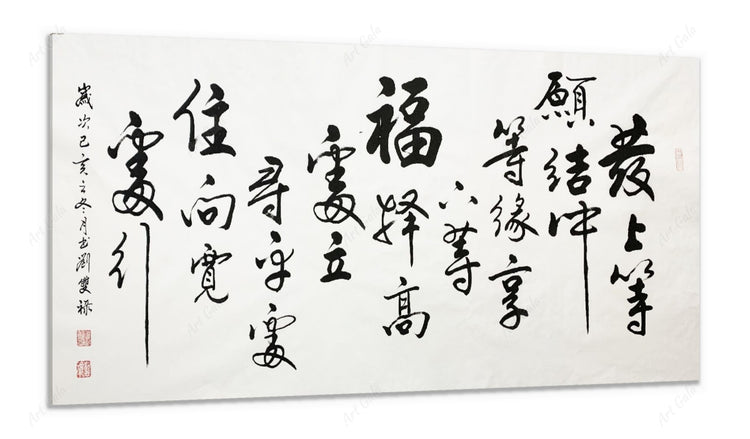 發上等
願結中
等緣享
下等
福择高
處立
尋平處
住向寬
處行
歲次己亥之冬月书劉雙祿
Art Gala